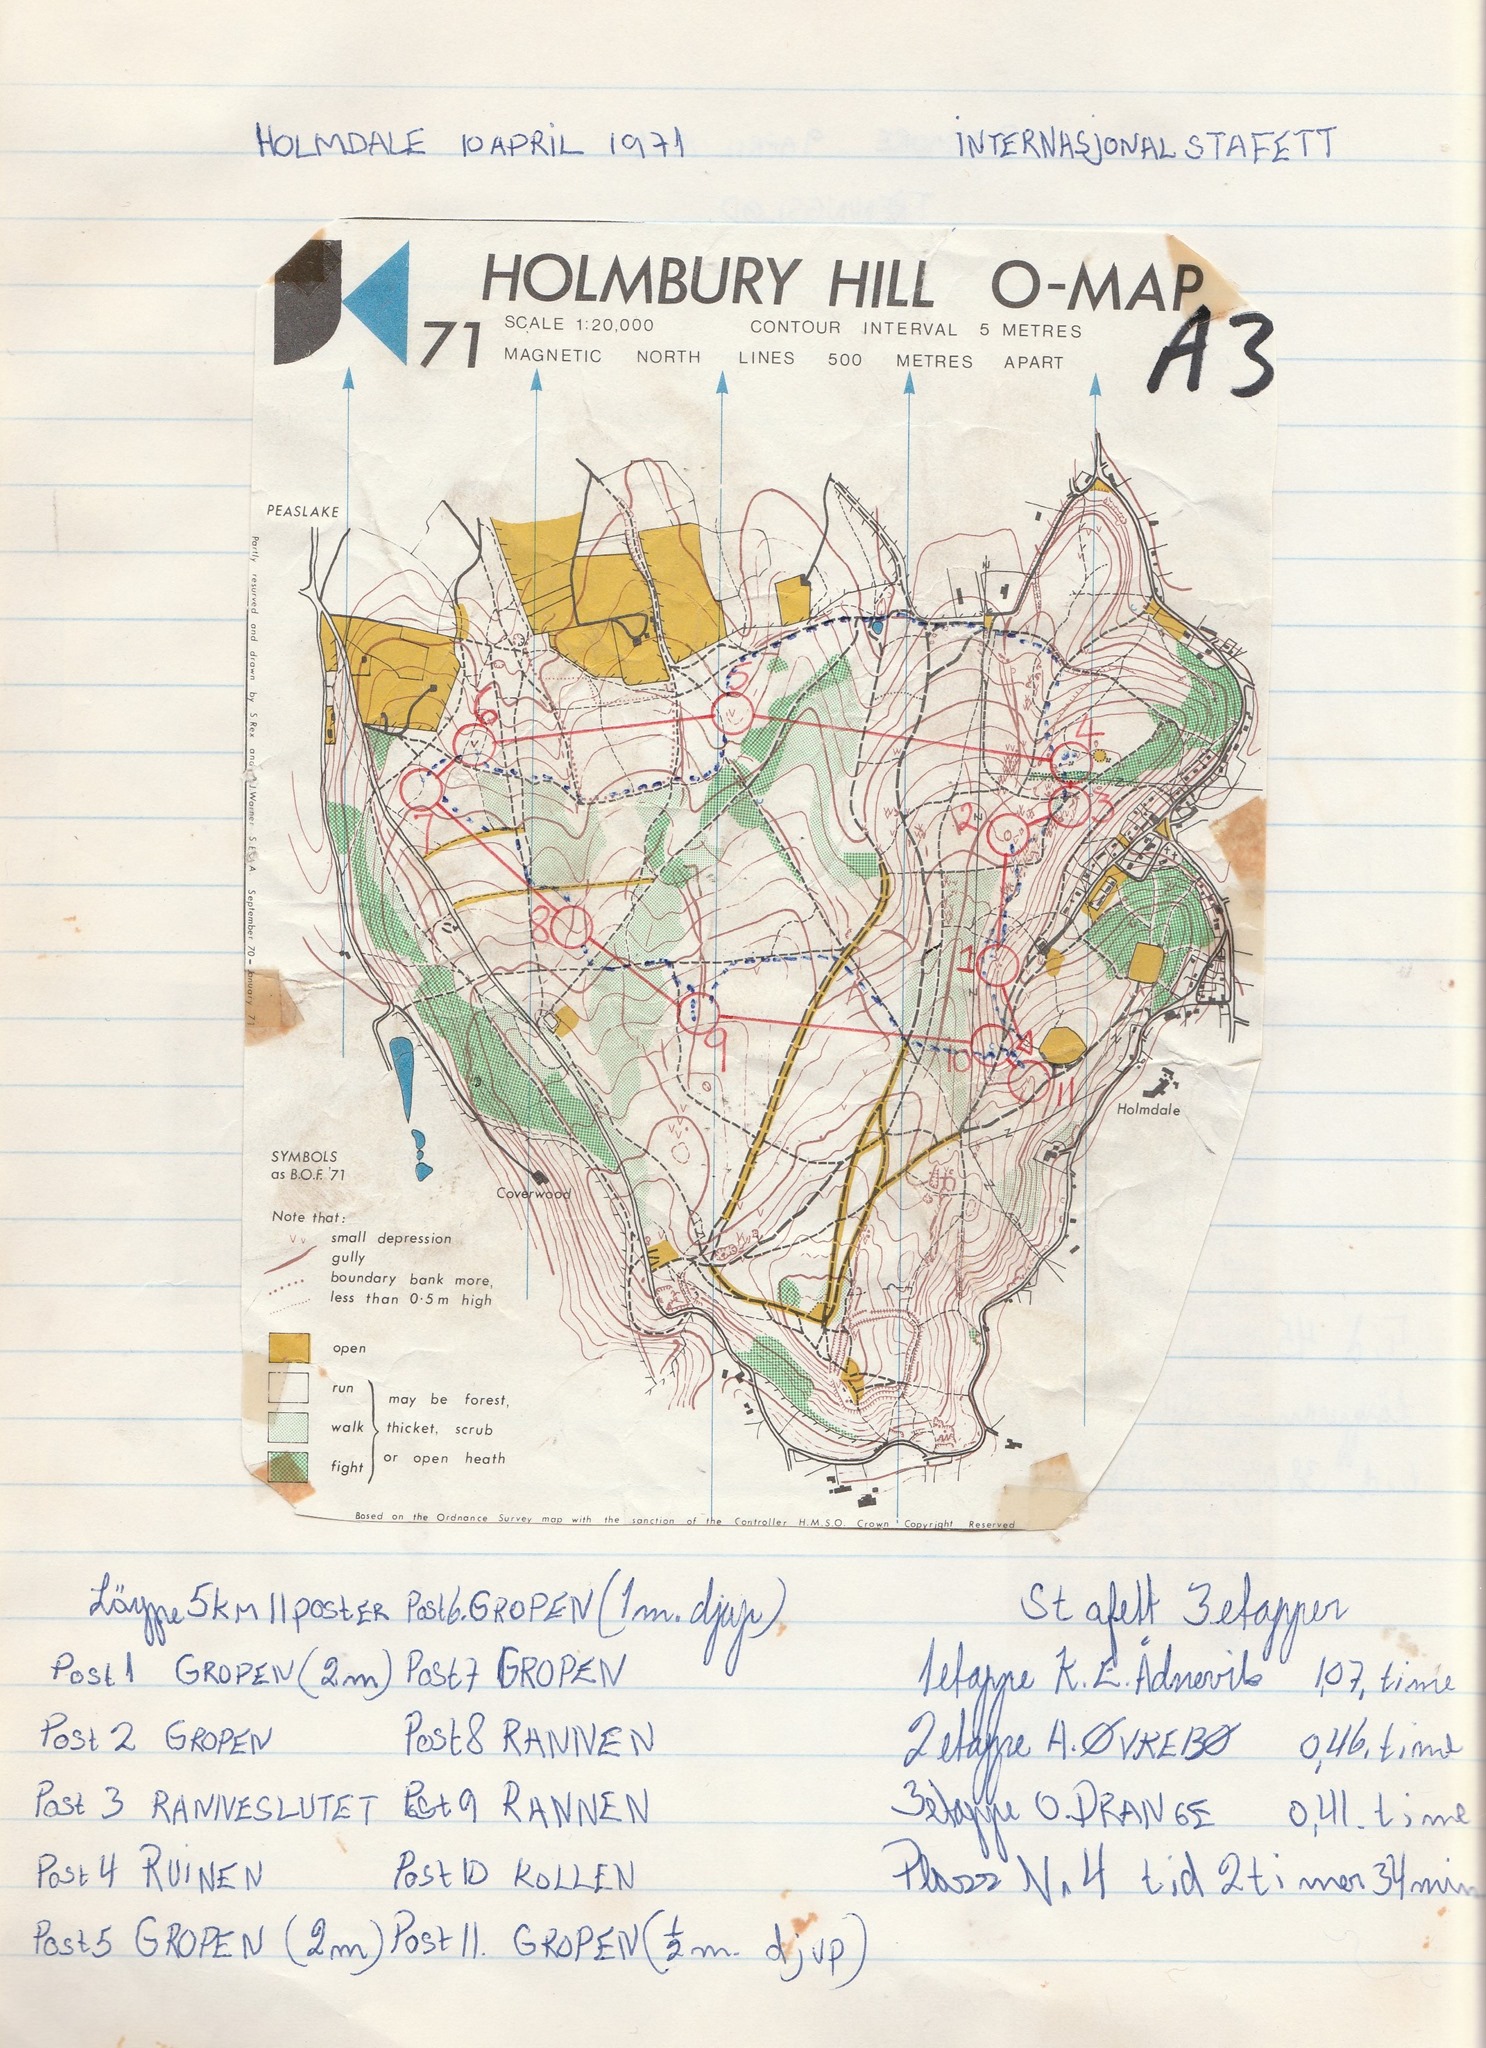 HOLMDALE 10 APRIL 1971 INTERNASJONAL STAFETT
HOLMBURY HILL O-MAP
71 SCALE 1:20,000 CONTOUR INTERVAL 5 METRES
MAGNETIC NORTH LINES 500 METRES APART
A3
PEASLAKE
Partly resurved and drawn by S. Rex and J. Warner S.E.O.A. September 70 - January 71
6
5
4
7
2
3
8
1
9
10
11
Holmdale
Coverwood
SYMBOLS
as B.O.F. '71
Note that:
small depression
gully
boundary bank more,
less than 0·5 m high
open
run
walk
fight
may be forest,
thicket, scrub
or open heath
Based on the Ordnance Survey map with the sanction of the Controller H.M.S.O. Crown Copyright Reserved
Löype 5 KM 11 POSTER Post 6. GROPEN (1 m. djup) Stafett 3 etapper
Post 1 GROPEN (2 m) Post 7 GROPEN 1 etappe K. E. 1,07, time
Post 2 GROPEN Post 8 RANNEN 2 etappe A. ØVREBØ 0,46. time
Post 3 RANNESLUTET Post 9 RANNEN 3 etappe O. DRANGE 0,41. time
Post 4 RUINEN Post 10 KOLLEN Plass N. 4 tid 2 timer 34 min
Post 5 GROPEN (2 m) Post 11. GROPEN (½ m. djup)